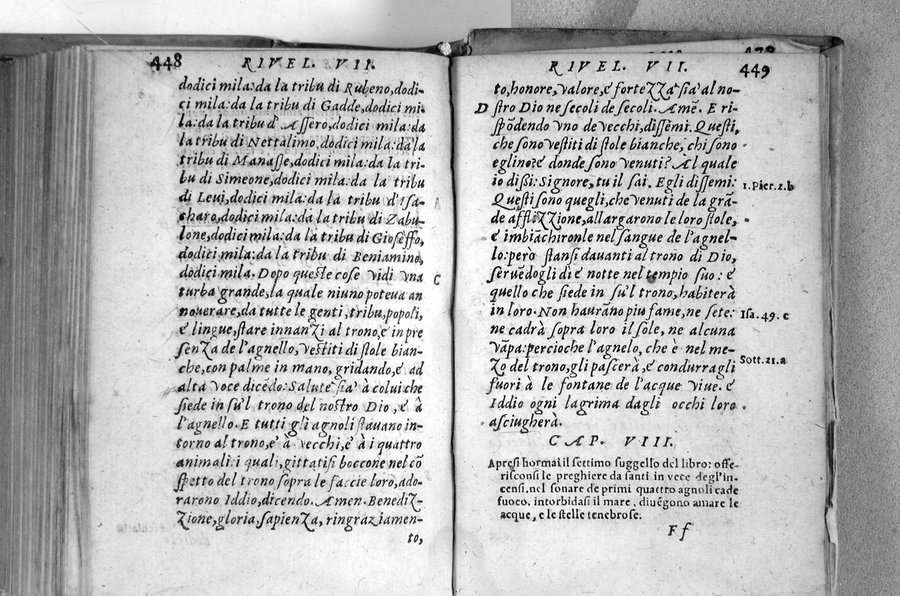 448
RIVEL. VII.
dodici mila: da la tribu di Rubeno, dodi-
ci mila: da la tribu di Gadde, dodici mi-
la: da la tribu d' Assero, dodici mila: da
la tribu di Nettalimo dodici mila: da la
tribu di Manasse, dodici mila: da la tri-
bu di Simeone, dodici mila: da la tribu
di Leui, dodici mila: da la tribu d'Isa-
charo, dodici mila: da la tribu di Zabu-
lone, dodici mila: da la tribu di Gioseffo,
dodici mila: da la tribu di Beniamino,
dodici mila. Dopo queste cose vidi vna
C
turba grande, la quale niuno poteua an
nouerare, da tutte le genti, tribu, popoli,
e' lingue, stare innanzi al trono, e' in pre
senza de l'agnello, vestiti di stole bian-
che, con palme in mano, gridando, e' ad
alta voce dicẽdo: Salute sia à colui che
siede in su'l trono del nostro Dio, e' à
l'agnello. E tutti gli agnoli stauano in-
torno al trono, e' à vecchi, e' à i quattro
animali: i quali, gittatisi boccone nel cõ
spetto del trono sopra le faccie loro, ado-
rarono Iddio, dicendo. Amen. Benediz-
zione, gloria, sapienza, ringraziamen-
to,
RIVEL. VII.
449
to, honore, valore, e' fortezza sia al no-
D
stro Dio ne secoli de secoli. Amẽ. E ri-
spõdendo vno de vecchi, dissemi. Questi,
che sono vestiti di stole bianche, chi sono
eglino? e' donde sono venuti? Al quale
io dißi: Signore, tu il sai. Egli dissemi:
1. Pier. 2. b
Questi sono quegli, che venuti de la grã-
de afflizzione, allargarono le loro stole,
e' imbiãchironle nel sangue de l'agnel-
lo: però stansi dauanti al trono di Dio,
seruẽdogli dì e' notte nel tempio suo: e'
quello che siede in su'l trono, habiterà
in loro. Non haurãno piu fame, ne sete:
Isa. 49. c
ne cadrà sopra loro il sole, ne alcuna
vãpa: percioche l'agnelo, che è nel me-
zo del trono, gli pascerà, e' condurragli
Sott. 21. a
fuori à le fontane de l'acque viue. e'
Iddio ogni lagrima dagli occhi loro
asciugherà.
CAP. VIII.
Apresi hormai il settimo suggello del libro: offe-
risconsi le preghiere da santi in vece degl'in-
censi, nel sonare de primi quattro agnoli cade
fuoco, intorbidasi il mare, diuẽgono amare le
acque, e le stelle tenebrose.
F f